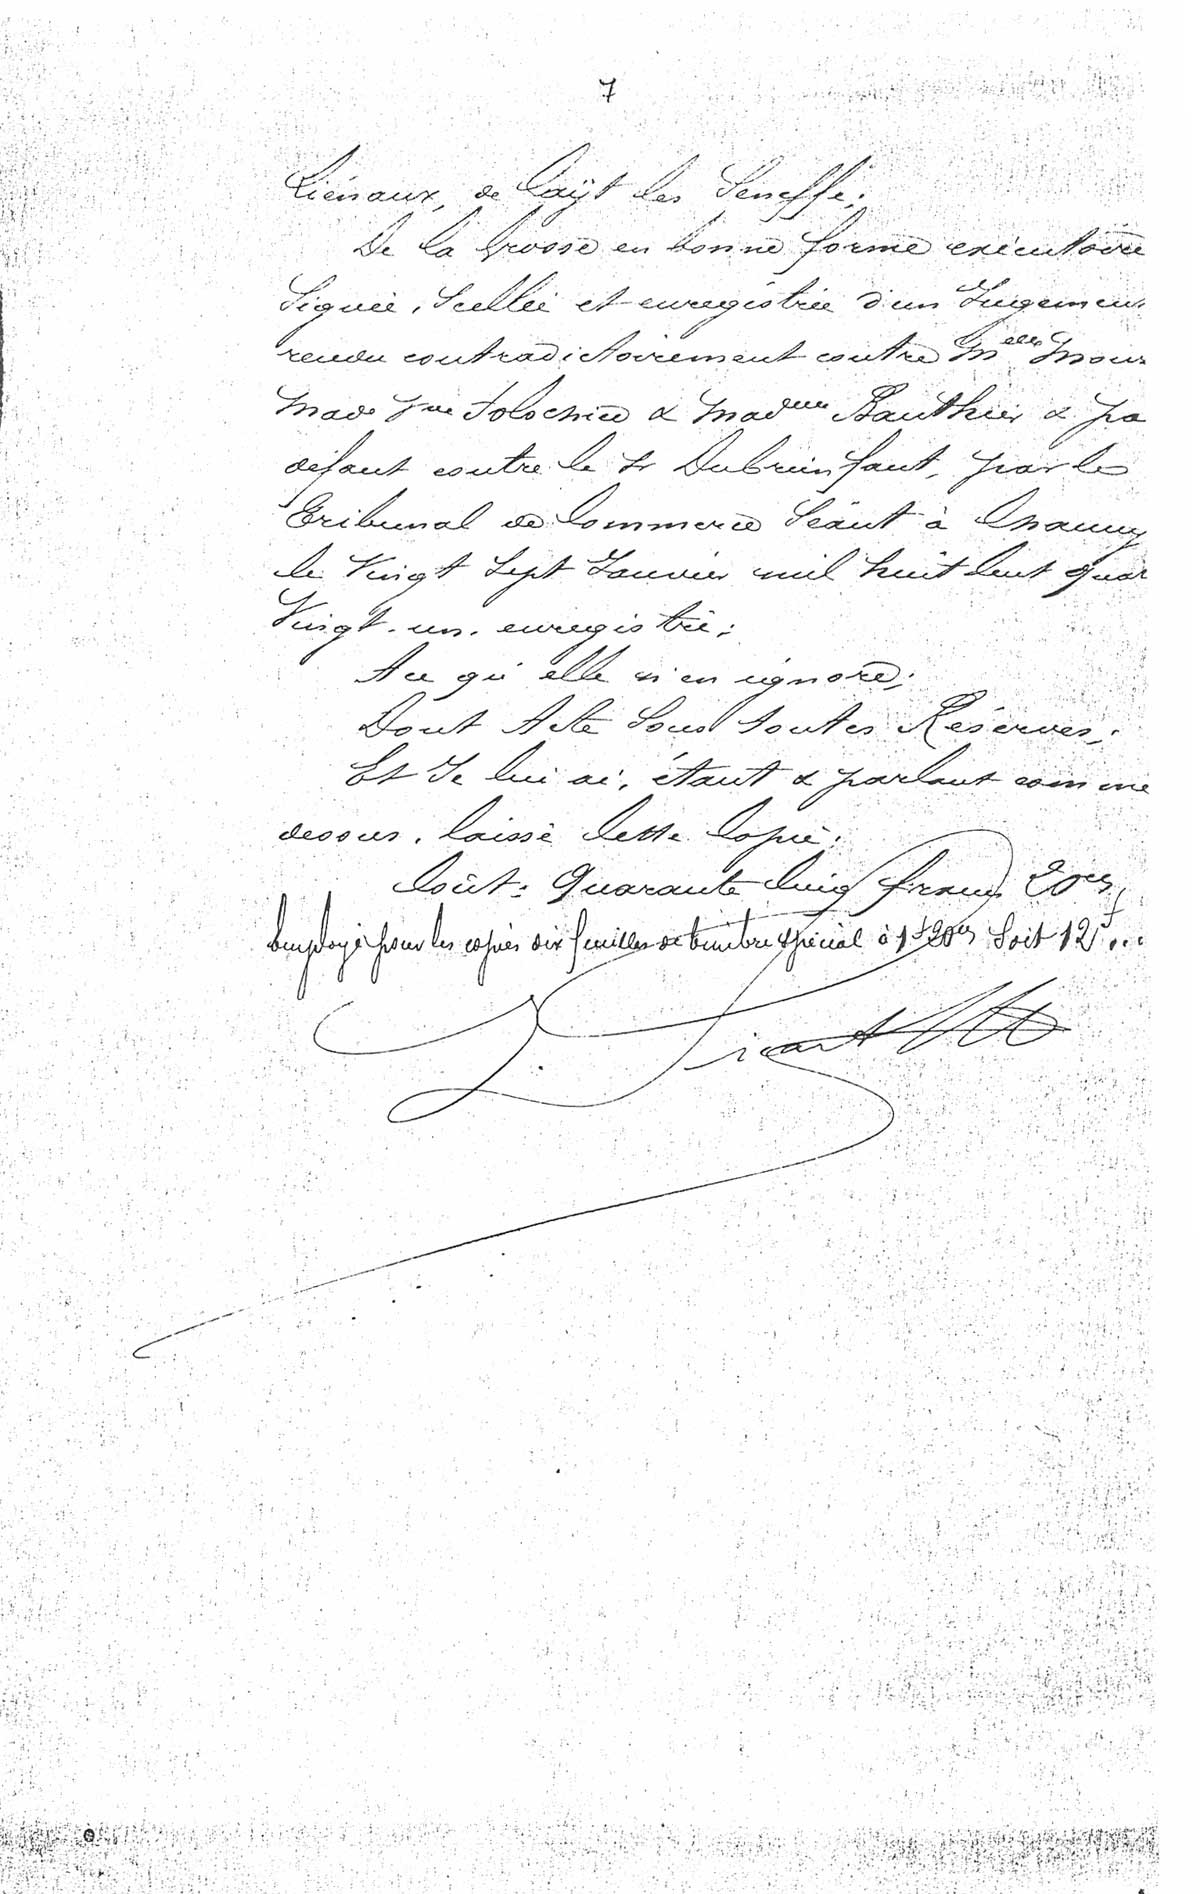 7
Liénaux, de Faÿt lez Seneffe;
De la Grosse en bonne forme exécutoire
Signée, Scellée et enregistrée d'un Jugemen
rendu contradictoirement contre Melles
Made Vve & Madame Bauthier & pa
défaut contre le Sr Dubrunfaut, par le
Tribunal de Commerce Séant à Chauny
le Vingt Sept Janvier mil huit Cent quat
Vingt-un, enregistré;
A ce qu'elle n'en ignore;
Dont Acte Sous toutes Réserves;
Et Je lui ai, étant & parlant comme
dessus, laissé Cette Copie;
Coût: Quarante Cinq francs 20cs
Employé pour les copies dix feuilles de timbre spécial à 1f20cs Soit 12f...